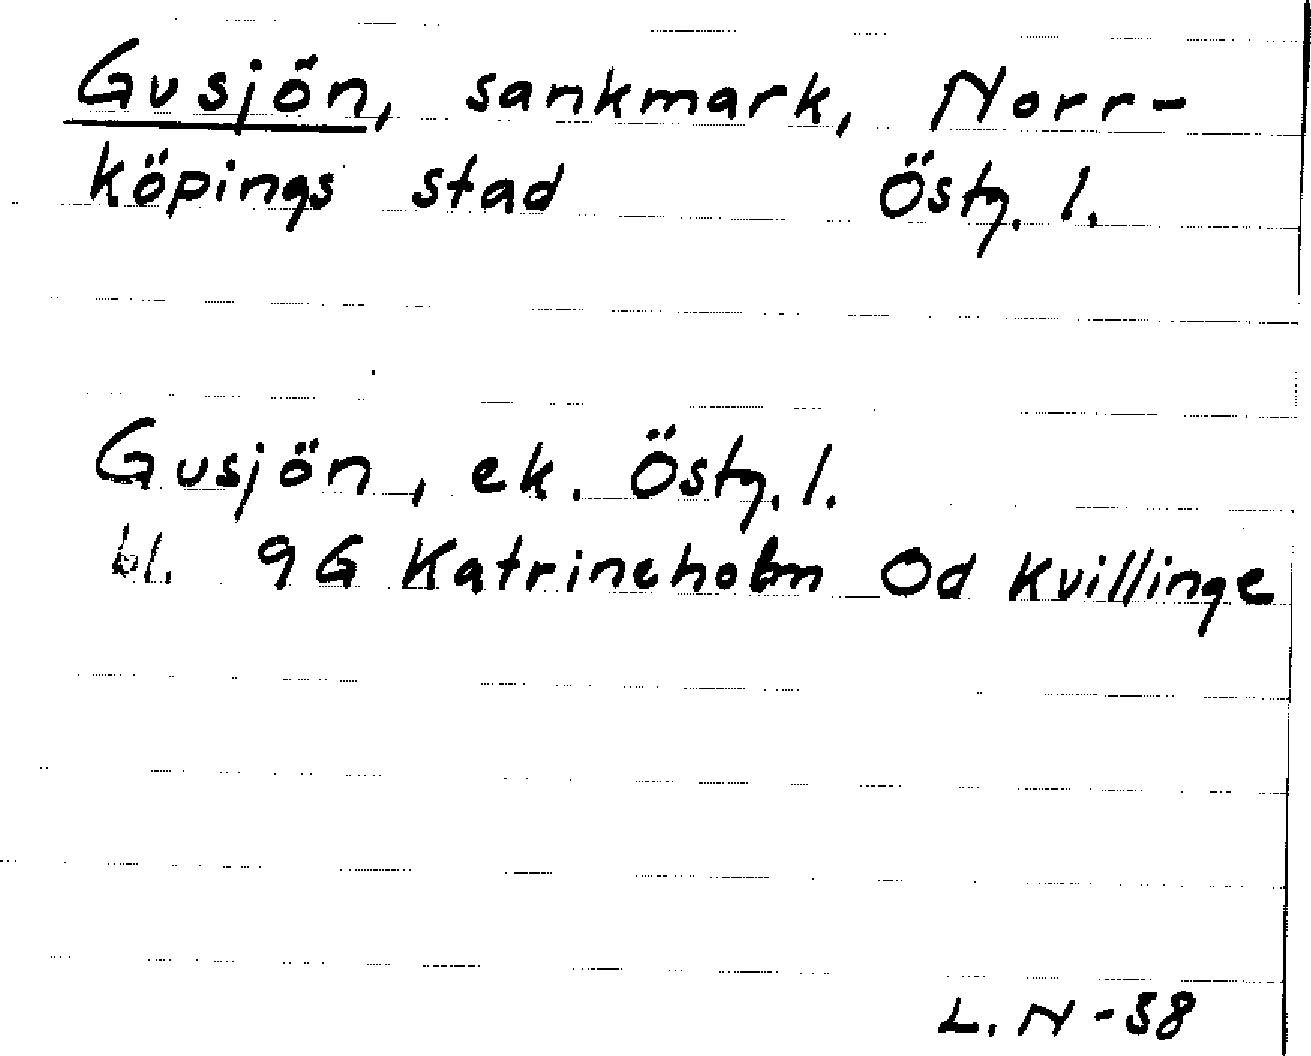 Gusjön, sankmark, Norr-
köpings stad Östg. l.
Gusjön, ek. Östg. l.
bl. 9G Katrineholm Od Kvillinge
L. N -58